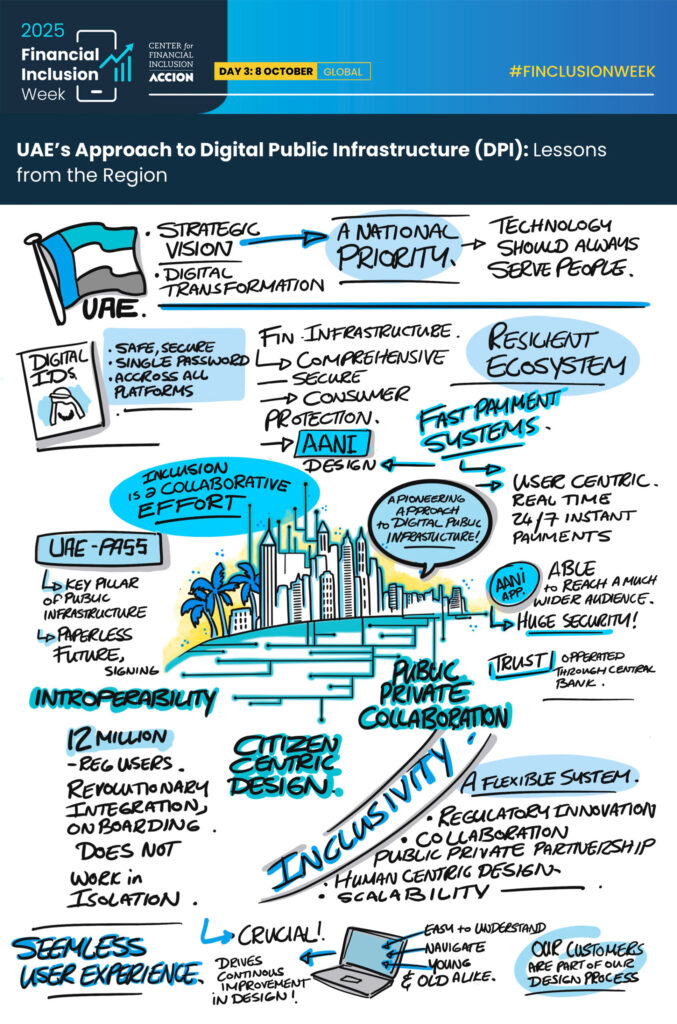 2025
Financial
Inclusion
Week
CENTER for
FINANCIAL
INCLUSION
ACCION
DAY 3: 8 OCTOBER
GLOBAL
#FINCLUSIONWEEK
UAE's Approach to Digital Public Infrastructure (DPI): Lessons
from the Region
UAE.
• STRATEGIC
VISION
• DIGITAL
TRANSFORMATION
A NATIONAL
PRIORITY.
TECHNOLOGY
SHOULD ALWAYS
SERVE PEOPLE.
DIGITAL
IDs.
• SAFE, SECURE
• SINGLE PASSWORD
• ACCROSS ALL
PLATFORMS
FIN. INFRASTRUCTURE.
COMPREHENSIVE
SECURE
CONSUMER
PROTECTION.
AANI
DESIGN
RESILIENT
ECOSYSTEM
FAST PAYMENT
SYSTEMS.
USER CENTRIC.
REAL TIME
24/7 INSTANT
PAYMENTS
INCLUSION
IS a COLLABORATIVE
EFFORT
A PIONEERING
APPROACH
to DIGITAL PUBLIC
INFRASTUCTURE!
UAE-PASS
KEY PILLAR
OF PUBLIC
INFRASTRUCTURE
PAPERLESS
FUTURE,
SIGNING
AANI
APP.
ABLE
to REACH A MUCH
WIDER AUDIENCE.
HUGE SECURITY!
TRUST
OPPERATED
THROUGH CENTRAL
BANK.
INTROPERABILITY
PUBLIC
PRIVATE
COLLABORATION
12 MILLION
- REG USERS.
REVOLUTIONARY
INTEGRATION,
ONBOARDING.
DOES NOT
WORK in
ISOLATION.
CITIZEN
CENTRIC
DESIGN.
INCLUSIVITY.
A FLEXIBLE SYSTEM.
• REGULATORY INNOVATION
• COLLABORATION
PUBLIC PRIVATE PARTNERSHIP
• HUMAN CENTRIC DESIGN.
• SCALABILITY
SEEMLESS
USER EXPERIENCE.
CRUCIAL!
DRIVES
CONTINOUS
IMPROVEMENT
IN DESIGN!
EASY to UNDERSTAND
NAVIGATE
YOUNG
& OLD ALIKE.
OUR CUSTOMERS
ARE PART OF OUR
DESIGN PROCESS